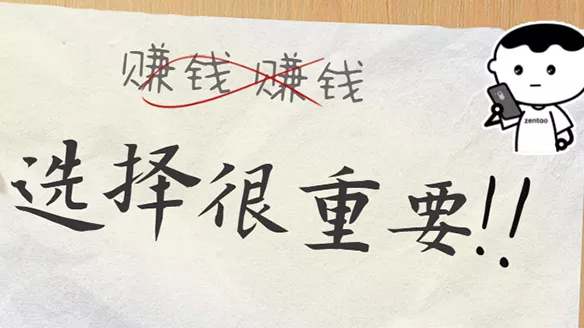 赚钱 赚钱
zentao
选择很重要!!